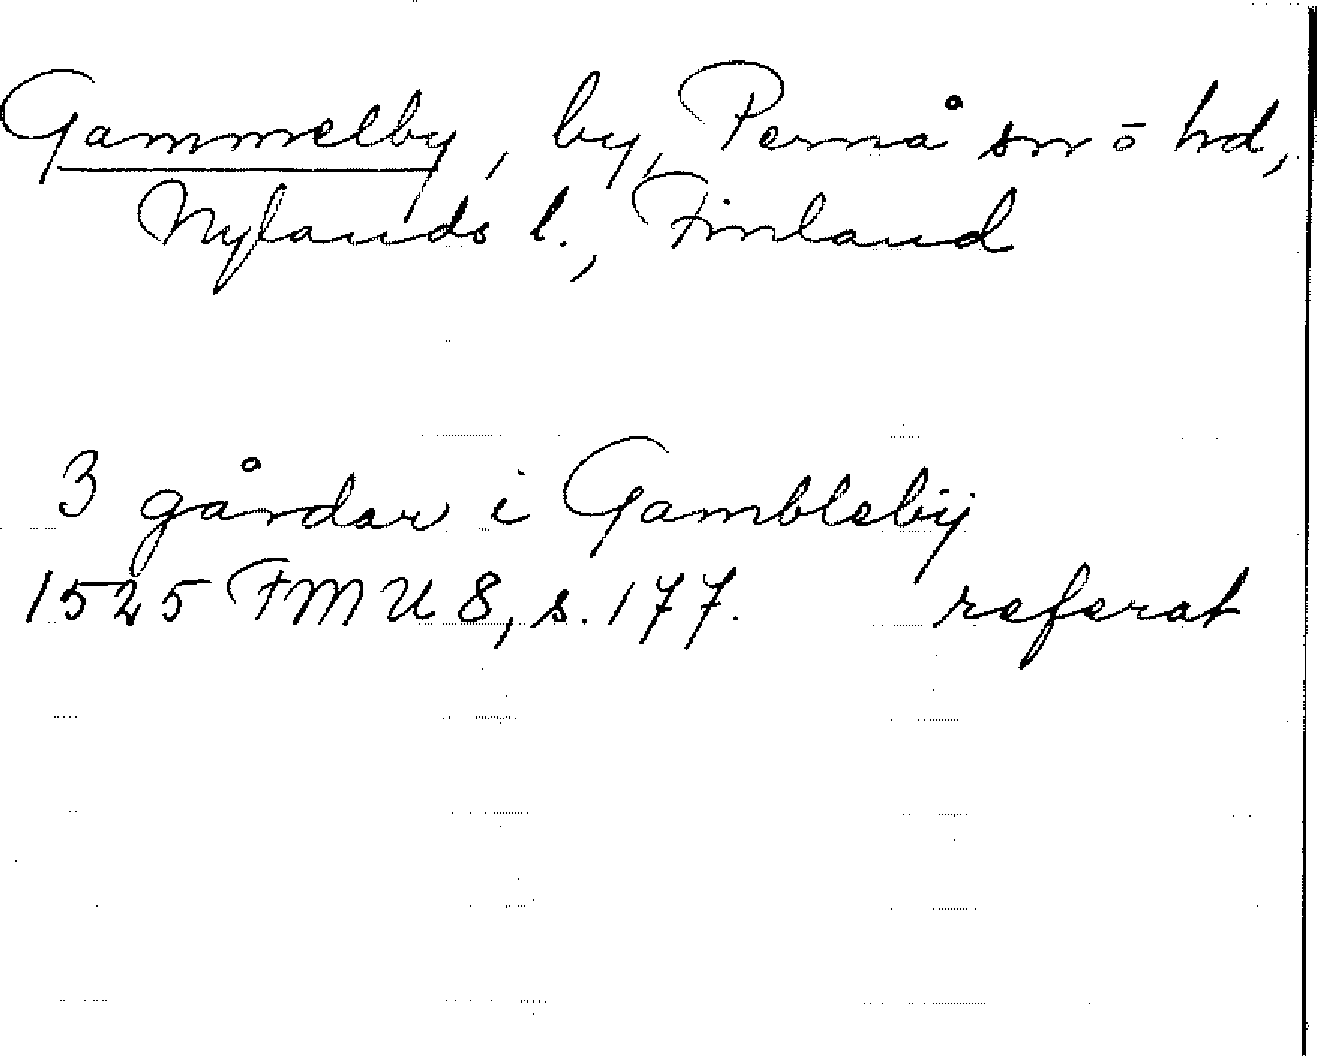 Gammelby, by, Pernå sn ō hd,
Nylands l., Finland
3 gårdar i Gamblebÿ
1525 FMU 8, s. 177. referat